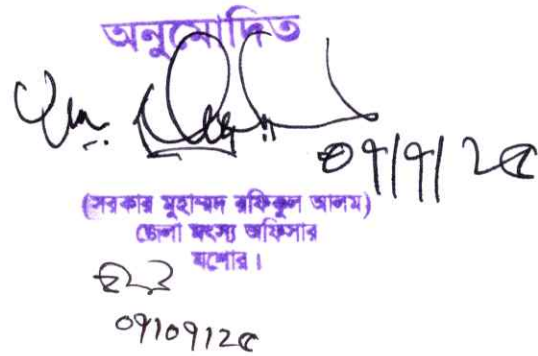 অনুমোদিত
০৭/৭/২৫
(সরকার মুহাম্মদ রফিকুল আলম)
জেলা মৎস্য অফিসার
যশোর।
০৭/০৭/২৫